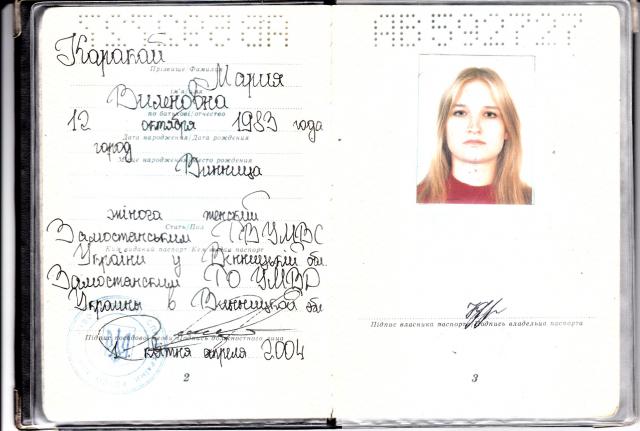 Каракай
Прізвище/Фамилия
Мария
ім'я/имя
Виленовна
по батькові/отчество
12 октября 1983 года
Дата народження/Дата рождения
город
Місце народження/Место рождения
Винница
жіноча женский
Стать/Пол
Замостянським УМВС
України у Вінницькій
Ким виданий паспорт Кем выдан паспорт
Замостянским УМВД
Украины в Винницкой
Підпис посадової особи/Подпись должностного лица
14 квітня апреля 2004
2
АВ592727
Підпис власника паспорта/Подпись владельца паспорта
3